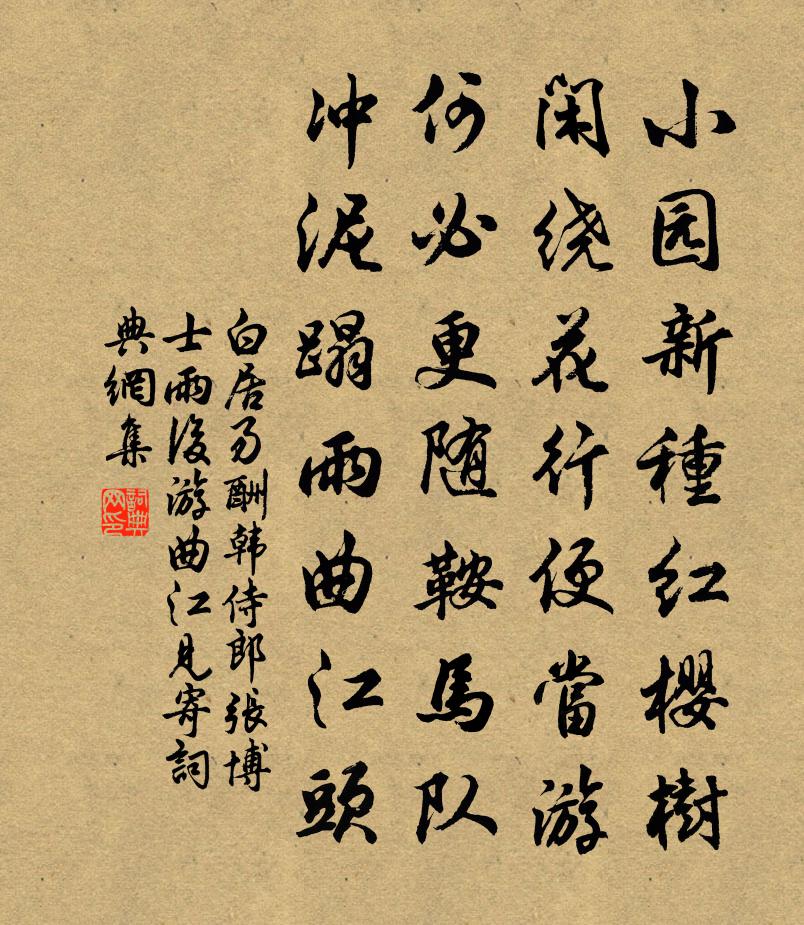 小园新種红櫻樹
闲绕花行便當游
何必更随鞍馬队
冲泥蹋雨曲江頭
白居易酬韩侍郎張博
士雨後游曲江見寄詞
典網集
詞典
网印